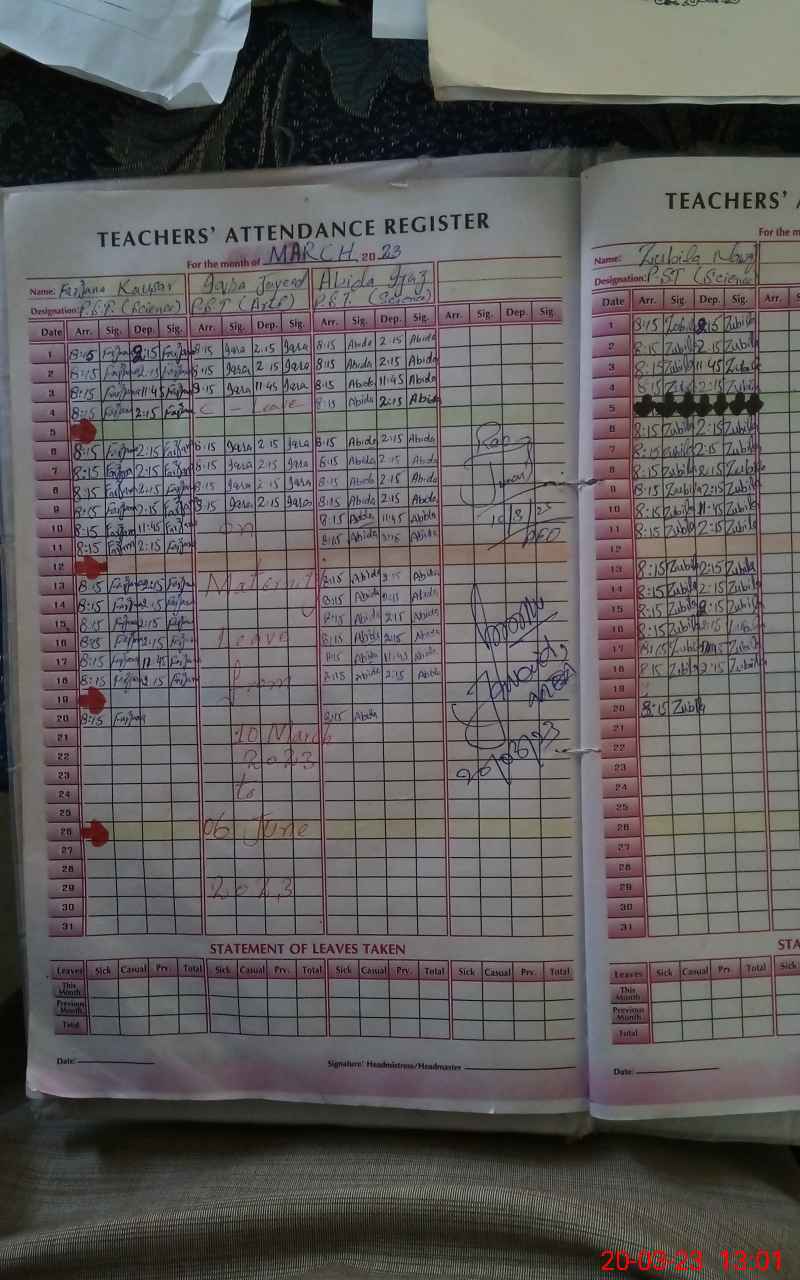 TEACHERS' ATTENDANCE REGISTER
For the month of MARCH, 2023
Name: Farzana Kausar Abida Ijaz
Designation: P.S.T (Science) P.S.T (Arts) P.S.T (Science)
Date Arr. Sig. Dep. Sig. Arr. Sig. Dep. Sig. Arr. Sig. Dep. Sig. Arr. Sig. Dep. Sig.
1 8:15 Farzana 2:15 Farzana 8:15 Isra 2:15 Isra 8:15 Abida 2:15 Abida
2 8:15 Farzana 2:15 Farzana 8:15 Isra 2:15 Isra 8:15 Abida 2:15 Abida
3 8:15 Farzana 11:45 Farzana 8:15 Isra 11:45 Isra 8:15 Abida 11:45 Abida
4 8:15 Farzana 2:15 Farzana C - Leave 8:15 Abida 2:15 Abida
5
6 8:15 Farzana 2:15 Farzana 8:15 Isra 2:15 Isra 8:15 Abida 2:15 Abida
7 8:15 Farzana 2:15 Farzana 8:15 Isra 2:15 Isra 8:15 Abida 2:15 Abida
8 8:15 Farzana 2:15 Farzana 8:15 Isra 2:15 Isra 8:15 Abida 2:15 Abida
9 8:15 Farzana 2:15 Farzana 8:15 Isra 2:15 Isra 8:15 Abida 2:15 Abida
10 8:15 Farzana 11:45 Farzana on 8:15 Abida 11:45 Abida
11 8:15 Farzana 2:15 Farzana 8:15 Abida 2:15 Abida
12
13 8:15 Farzana 2:15 Farzana Maternity 8:15 Abida 2:15 Abida
14 8:15 Farzana 2:15 Farzana 8:15 Abida 2:15 Abida
15 8:15 Farzana 2:15 Farzana 8:15 Abida 2:15 Abida
16 8:15 Farzana 2:15 Farzana Leave 8:15 Abida 2:15 Abida
17 8:15 Farzana 11:45 Farzana 8:15 Abida 11:45 Abida
18 8:15 Farzana 2:15 Farzana from 8:15 Abida 2:15 Abida
19
20 8:15 Farzana 8:15 Abida
21 10 March
22 2023
23
24 to
25
26 06 June
27
28
29 2023
30
31
20/03/23
STATEMENT OF LEAVES TAKEN
Leaves Sick Casual Prv. Total Sick Casual Prv. Total Sick Casual Prv. Total Sick Casual Prv. Total
This Month
Previous Month
Total
Date: Signature: Headmistress/Headmaster
TEACHERS'
For the m
Name: Zubila
Designation: PST (Science)
Date Arr. Sig. Dep. Sig. Arr.
1 8:15 Zubila 2:15 Zubila
2 8:15 Zubila 2:15 Zubila
3 8:15 Zubila 11:45 Zubila
4 8:15 Zubila 2:15 Zubila
5
6 8:15 Zubila 2:15 Zubila
7 8:15 Zubila 2:15 Zubila
8 8:15 Zubila 2:15 Zubila
9 8:15 Zubila 2:15 Zubila
10 8:15 Zubila 11:45 Zubila
11 8:15 Zubila 2:15 Zubila
12
13 8:15 Zubila 2:15 Zubila
14 8:15 Zubila 2:15 Zubila
15 8:15 Zubila 2:15 Zubila
16 8:15 Zubila 2:15 Zubila
17 8:15 Zubila Zubila
18 8:15 Zubila 2:15 Zubila
19
20 8:15 Zubila
21
22
23
24
25
26
27
28
29
30
31
STA
Leaves Sick Casual Prv. Total Sick
This Month
Previous Month
Total
Date:
20-03-23 13:01